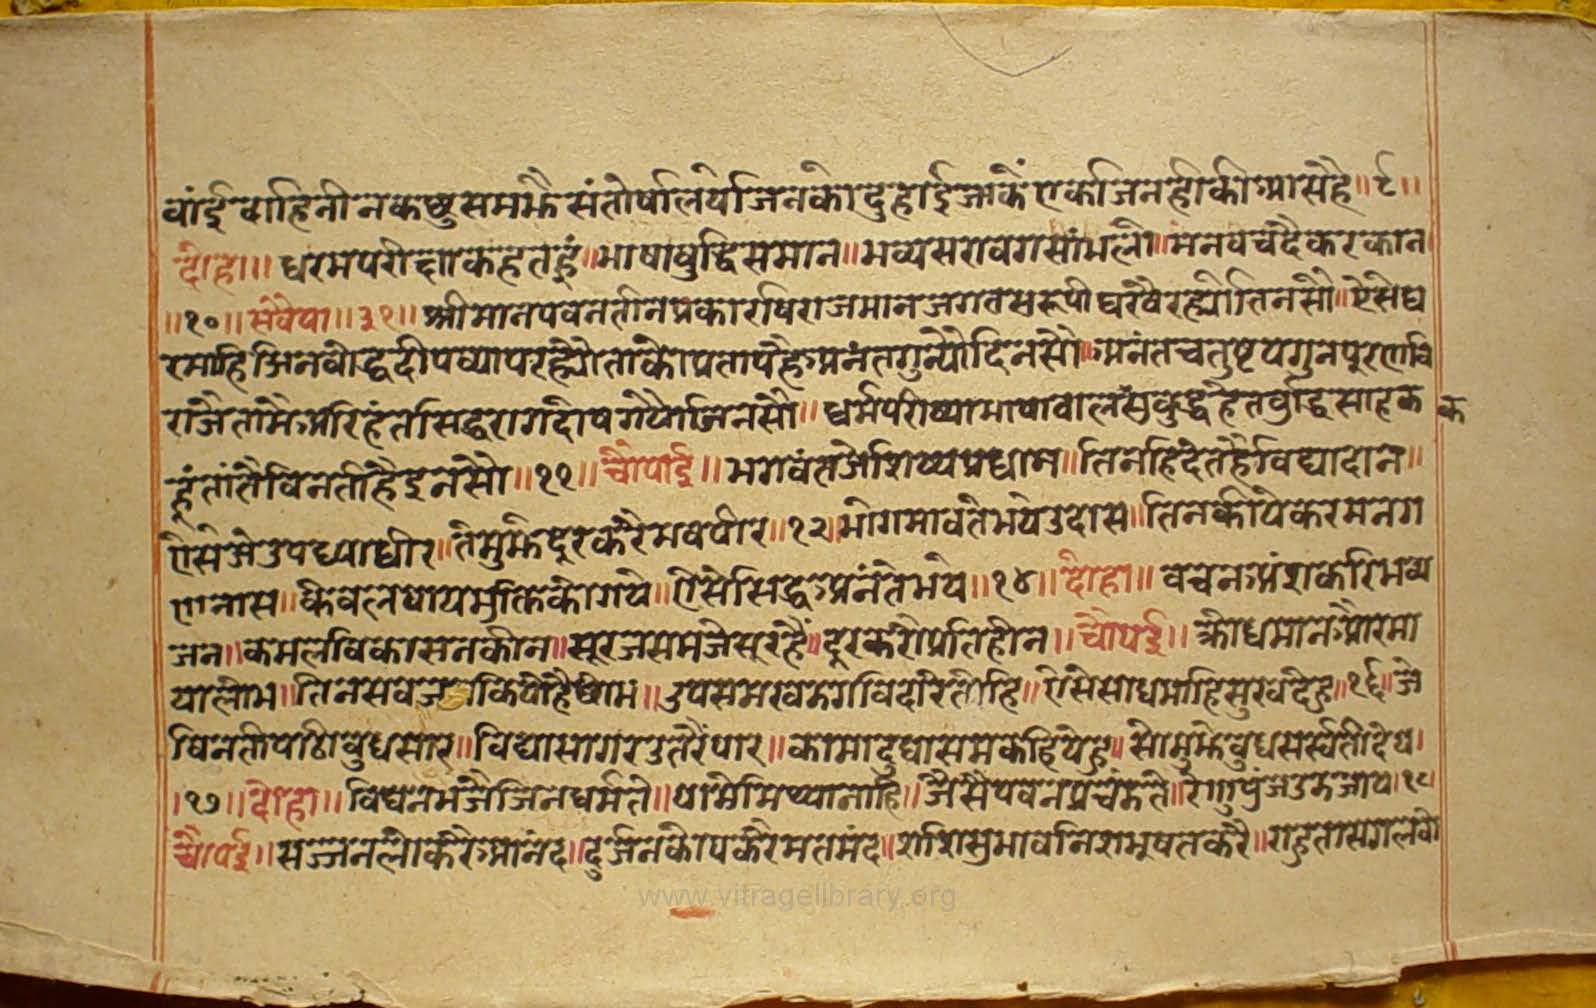 वांई दाहिनी न कछु समझै संतोर्षालयेजिनकोदुहाईजाकेंएकजिनहीकीआसहै॥९॥
दोहा॥ धरमपरीक्षाकहतहुं॥भाषाबुद्धिसमान॥भव्यसरावगसांभलौ॥मनवचदैकरकान
॥१०॥ सवैया॥३१॥ श्रीमानपवनतीनप्रकारविराजमानजगतसरूपीघरवैरह्योतिनसौ॥ऐसेघ
रमाहिजिनवोद्धदीपव्यापरह्यौताकोप्रतापहैअनंतगुन्यौदिनसौ॥अनंतचतुष्टयगुनपूरणवि
राजैतामैअरिहंतसिद्धरागदोषगयेजिनसौ॥ धर्मपरीष्याभाषावालसुबुद्धहेतबुद्धिसाहक
क
हूंतांतौविनतीहैइनसौ॥११॥चौपाई॥भगवंतजेशिष्यप्रधान॥तिनहिदेतहैविद्यादान॥
ऐसेजेउपध्याधीर॥तेमुझेदूरकरैभवपीर॥१३॥भोगभावतेभयेउदास॥तिनकीयेकरमनग
णनास॥केवलपायमुक्तिकोगये॥ऐसेसिद्धअनंतेभये॥१४॥दोहा॥ वचनअंशकरिभव्य
जन॥कमलविकासनकीन॥सूरजसमजेसूरहैं॥दूरकरोप्रतिहीन॥चौपई॥ क्रोधमानऔरमा
यालोभ॥तिनसबज
कियोहै
॥उपसमखडगविदारेतेहि॥ऐसेसोधमोहिसुखदेहु॥१६॥जे
विनतीपढोबुधसार॥विद्यासागरउतरैंपार॥कामादुघासमकहियेहु॥सोमुझेबुधसर्स्वतीदेय।
॥१७॥दोहा॥ विघनभजैजिनधर्मते॥यामेमिथ्यानाहि॥जैसैपवनप्रचंडतै॥रेणुपुंजउडजाय॥१८॥
चौपई॥ सज्जनलोकरैआनंद॥दुर्जनकोपकरैमतमंद॥शशिसुभावनिशभूषतकरै॥राहुतासगलवो
www.vitragelibrary.org